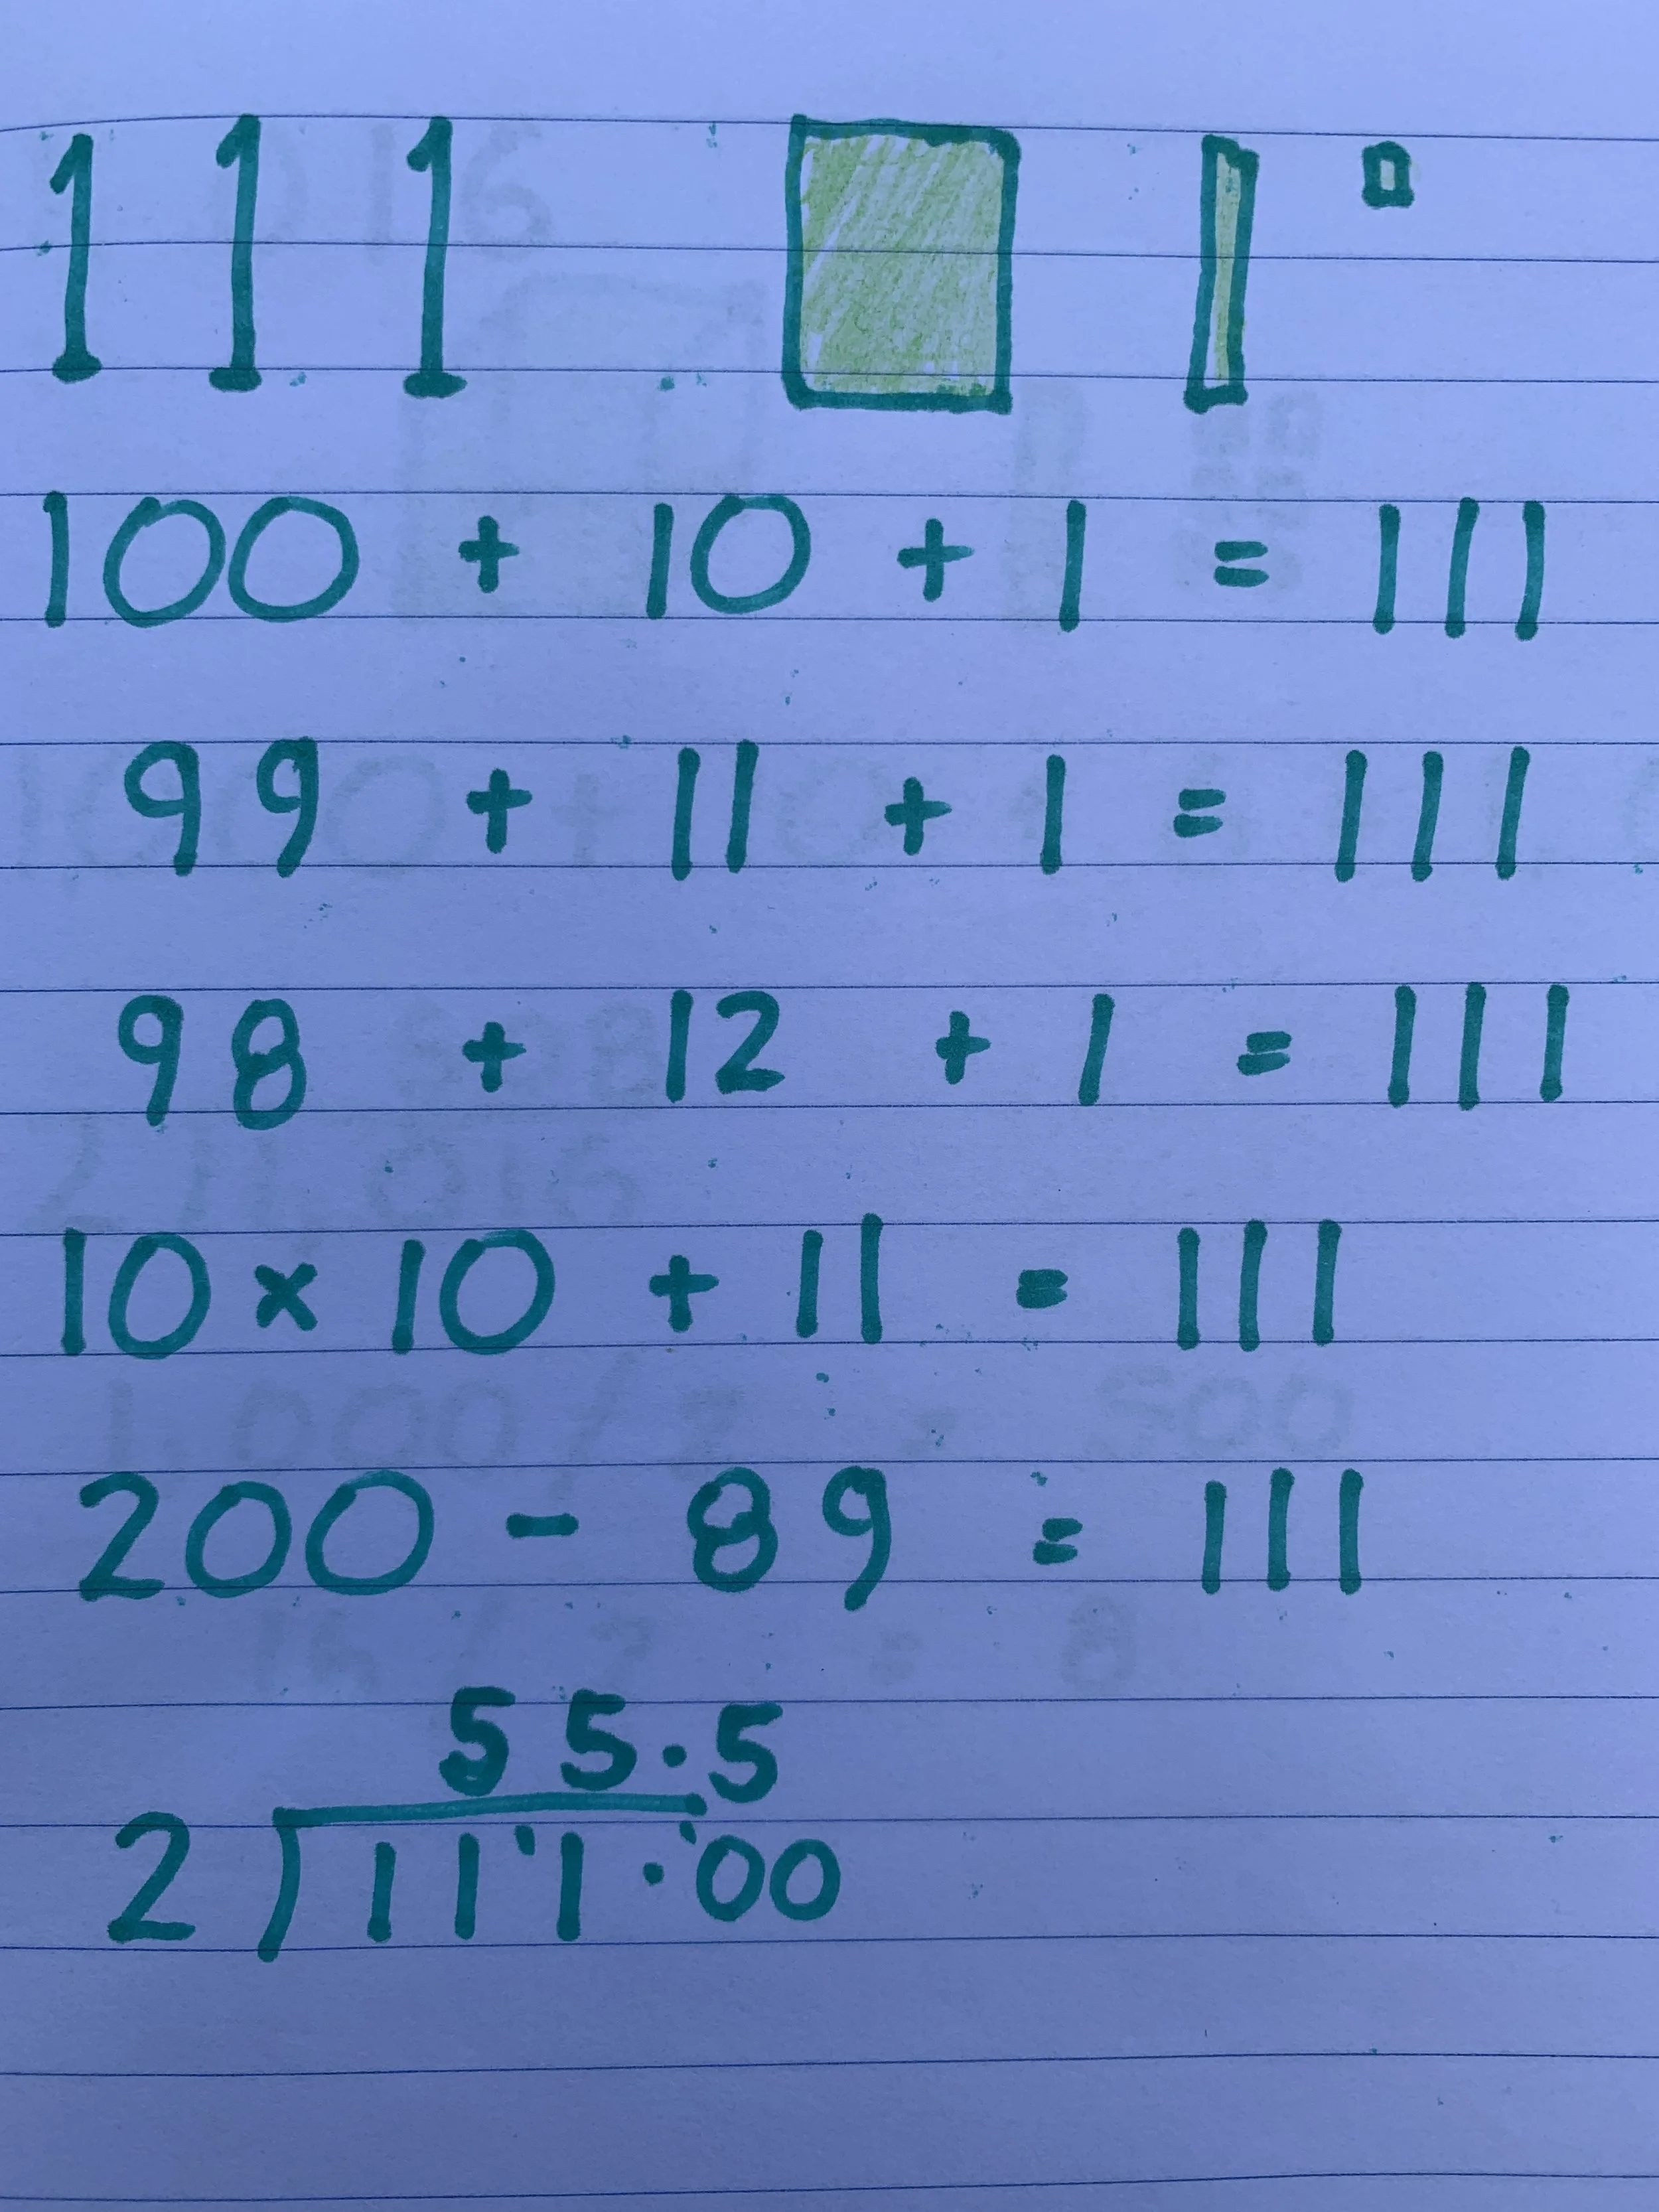 111
100 + 10 + 1 = 111
99 + 11 + 1 = 111
98 + 12 + 1 = 111
10 × 10 + 11 = 111
200 - 89 = 111
55.5
2 11'1.'00